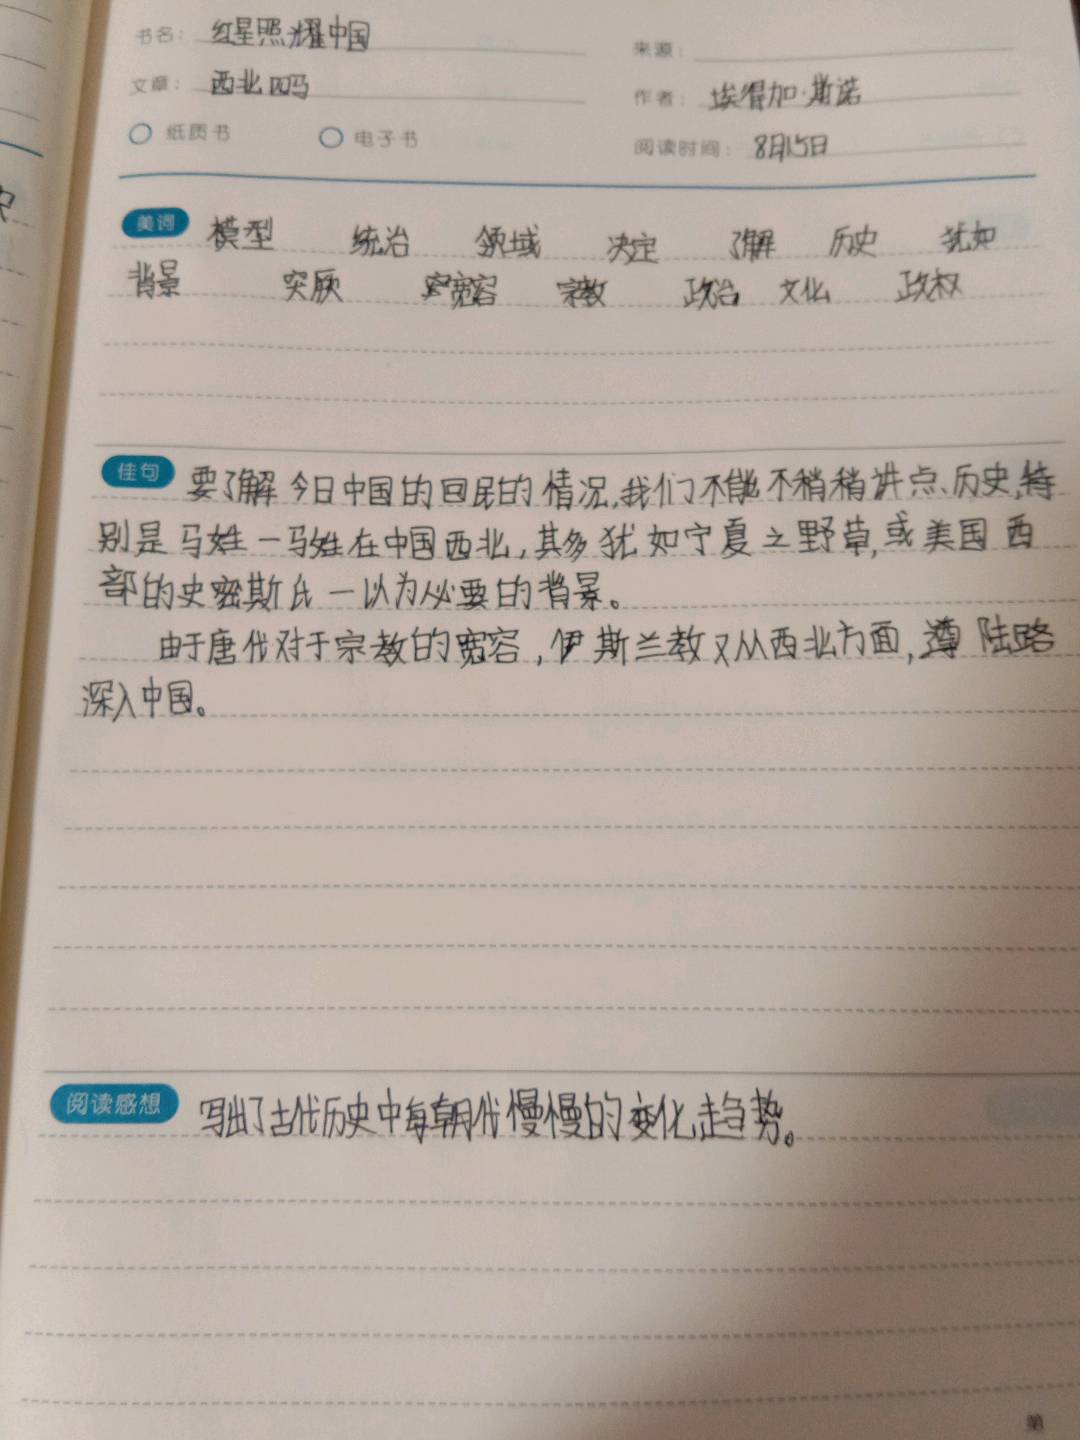 书名： 红星照耀中国
来源：
文章： 西北四马
作者： 埃得加·斯诺
纸质书 电子书
阅读时间： 8月15日
美词 模型 统治 领域 决定 了解 历史 犹如
背景 突厥 宽容 宗教 政治 文化 政权
佳句 要了解今日中国的回民的情况,我们不能不稍稍讲点历史,特
别是马姓一马姓在中国西北,其多犹如宁夏之野草,或美国西
部的史密斯氏一以为必要的背景。
由于唐代对于宗教的宽容,伊斯兰教又从西北方面,遵陆路
深入中国。
阅读感想 写出了古代历史中每朝代慢慢的变化走趋势。
第